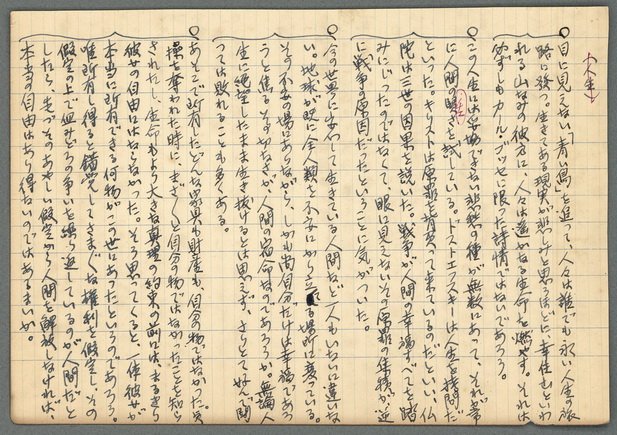 （人生）
目に見えない「青い鳥」を追って、人々は誰でも永い人生の旅
路に発つ。生きてゐる現実が悲しけと思うほどに、幸住むといわ
れる山なみの彼方に、人々は遥かなる生命を燃やす。それは
必ずしもカール・ブッセに限った詩情ではないであろう。
この人生には妥協できない悲劇の種が無数にあって、それが常
に人間の賢さを試している。ドストエフスキーは人生を拷問だ
といった。キリストは原罪を背負って来ているのだといい、仏
陀は三世の因果を説いた。戦争が人間の幸福すべてを踏
みにじったのではなくて、眼に見えないその原罪の集積が逆
に戦争の原因だったということに気がついた。
今の世界に安心して生きている人間など一人もいないに違いな
い。地球が既に全人類を不安に立る場所に変っている。
その不安の場にありながら、しかも尚自分だけは幸福であろ
うと焦るそのせつなさが、人間の宿命なのであろうか。無論人
生に絶望したまま生き抜けるとは思えず、さりとて好んで闘
っては敗れることも多くある。
あそこで所有したどんな家具も財産も、自分の物ではなかった。
操を奪われた時に、まざ〱と自分の物ではなかったことを知ら
されたし、生命もより大きな真理の約束の前には、
彼女の自由にはならなかった。そう思ってくると、一体彼女が
本当に所有できる何物がこの世にあったというのであろう。
唯所有し得ると錯覚してさま〲な権利を仮定し、その
仮定の上で血みどろの争いを繰り返しているのが人間だと
したら、先づそのあやしい仮定から人間を解放しなければ、
本当の自由はあり得ないのではあるまいか。